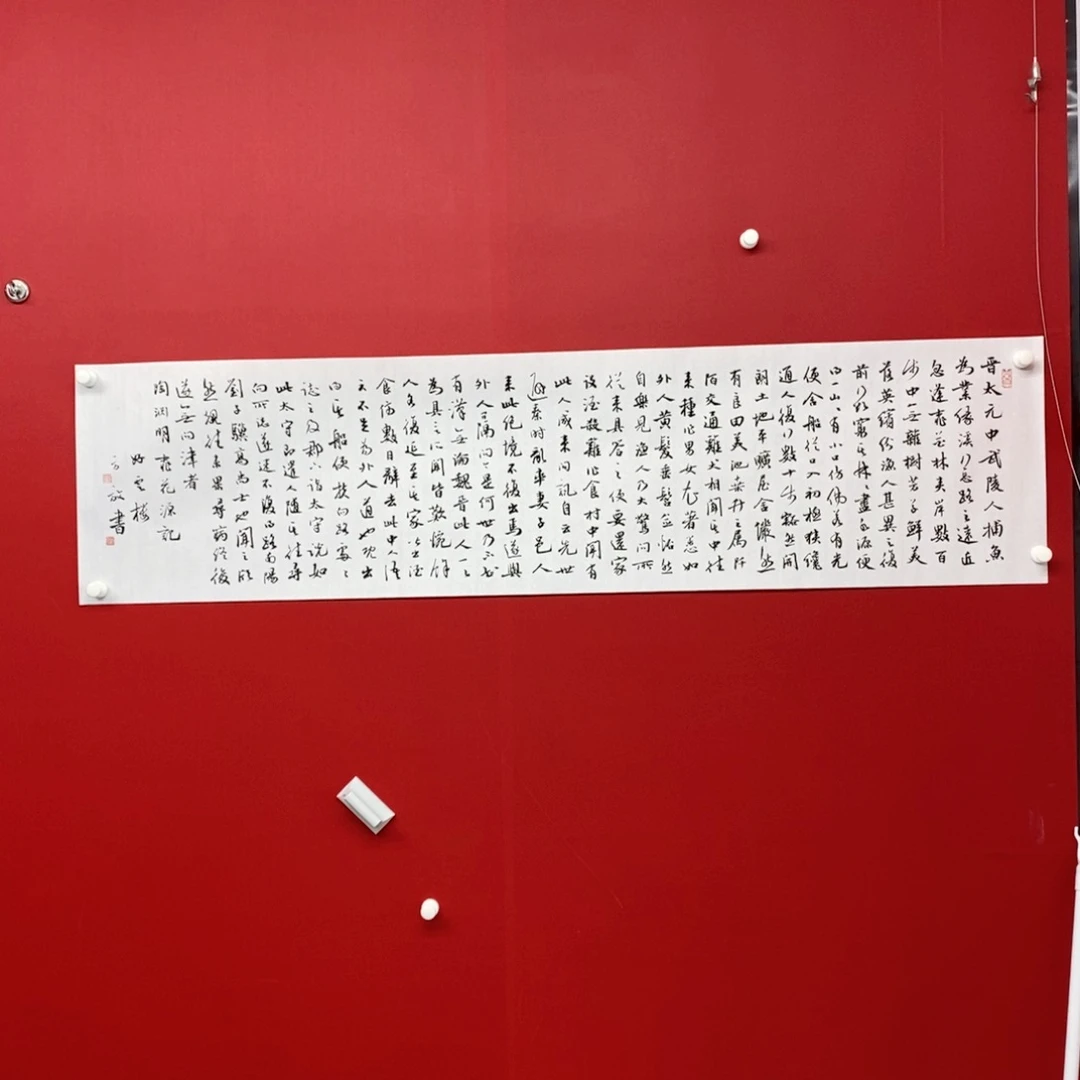 晉太元中武陵人捕魚
為業緣溪行忘路之遠近
忽逢桃花林夾岸數百
步中無雜樹芳草鮮美
落英繽紛漁人甚異之復
前行欲窮其林林盡水源便
得一山山有小口彷彿若有光
便舍船從口入初極狹纔
通人復行數十步豁然開
朗土地平曠屋舍儼然
有良田美池桑竹之屬阡
陌交通雞犬相聞其中往
來種作男女衣著悉如
外人黃髮垂髫並怡然
自樂見漁人乃大驚問所
從來具答之便要還家
設酒殺雞作食村中聞有
此人咸來問訊自云先世
避秦時亂率妻子邑人
來此絕境不復出焉遂與
外人間隔問今是何世乃不知
有漢無論魏晉此人一一
為具言所聞皆歎惋餘
人各復延至其家皆出酒
食停數日辭去此中人語
云不足為外人道也既出
得其船便扶向路處處
誌之及郡下詣太守說如
此太守即遣人隨其往尋
向所誌遂迷不復得路南陽
劉子驥高尚士也聞之欣
然規往未果尋病終後
遂無問津者
陶淵明桃花源記
好雲樓
放書